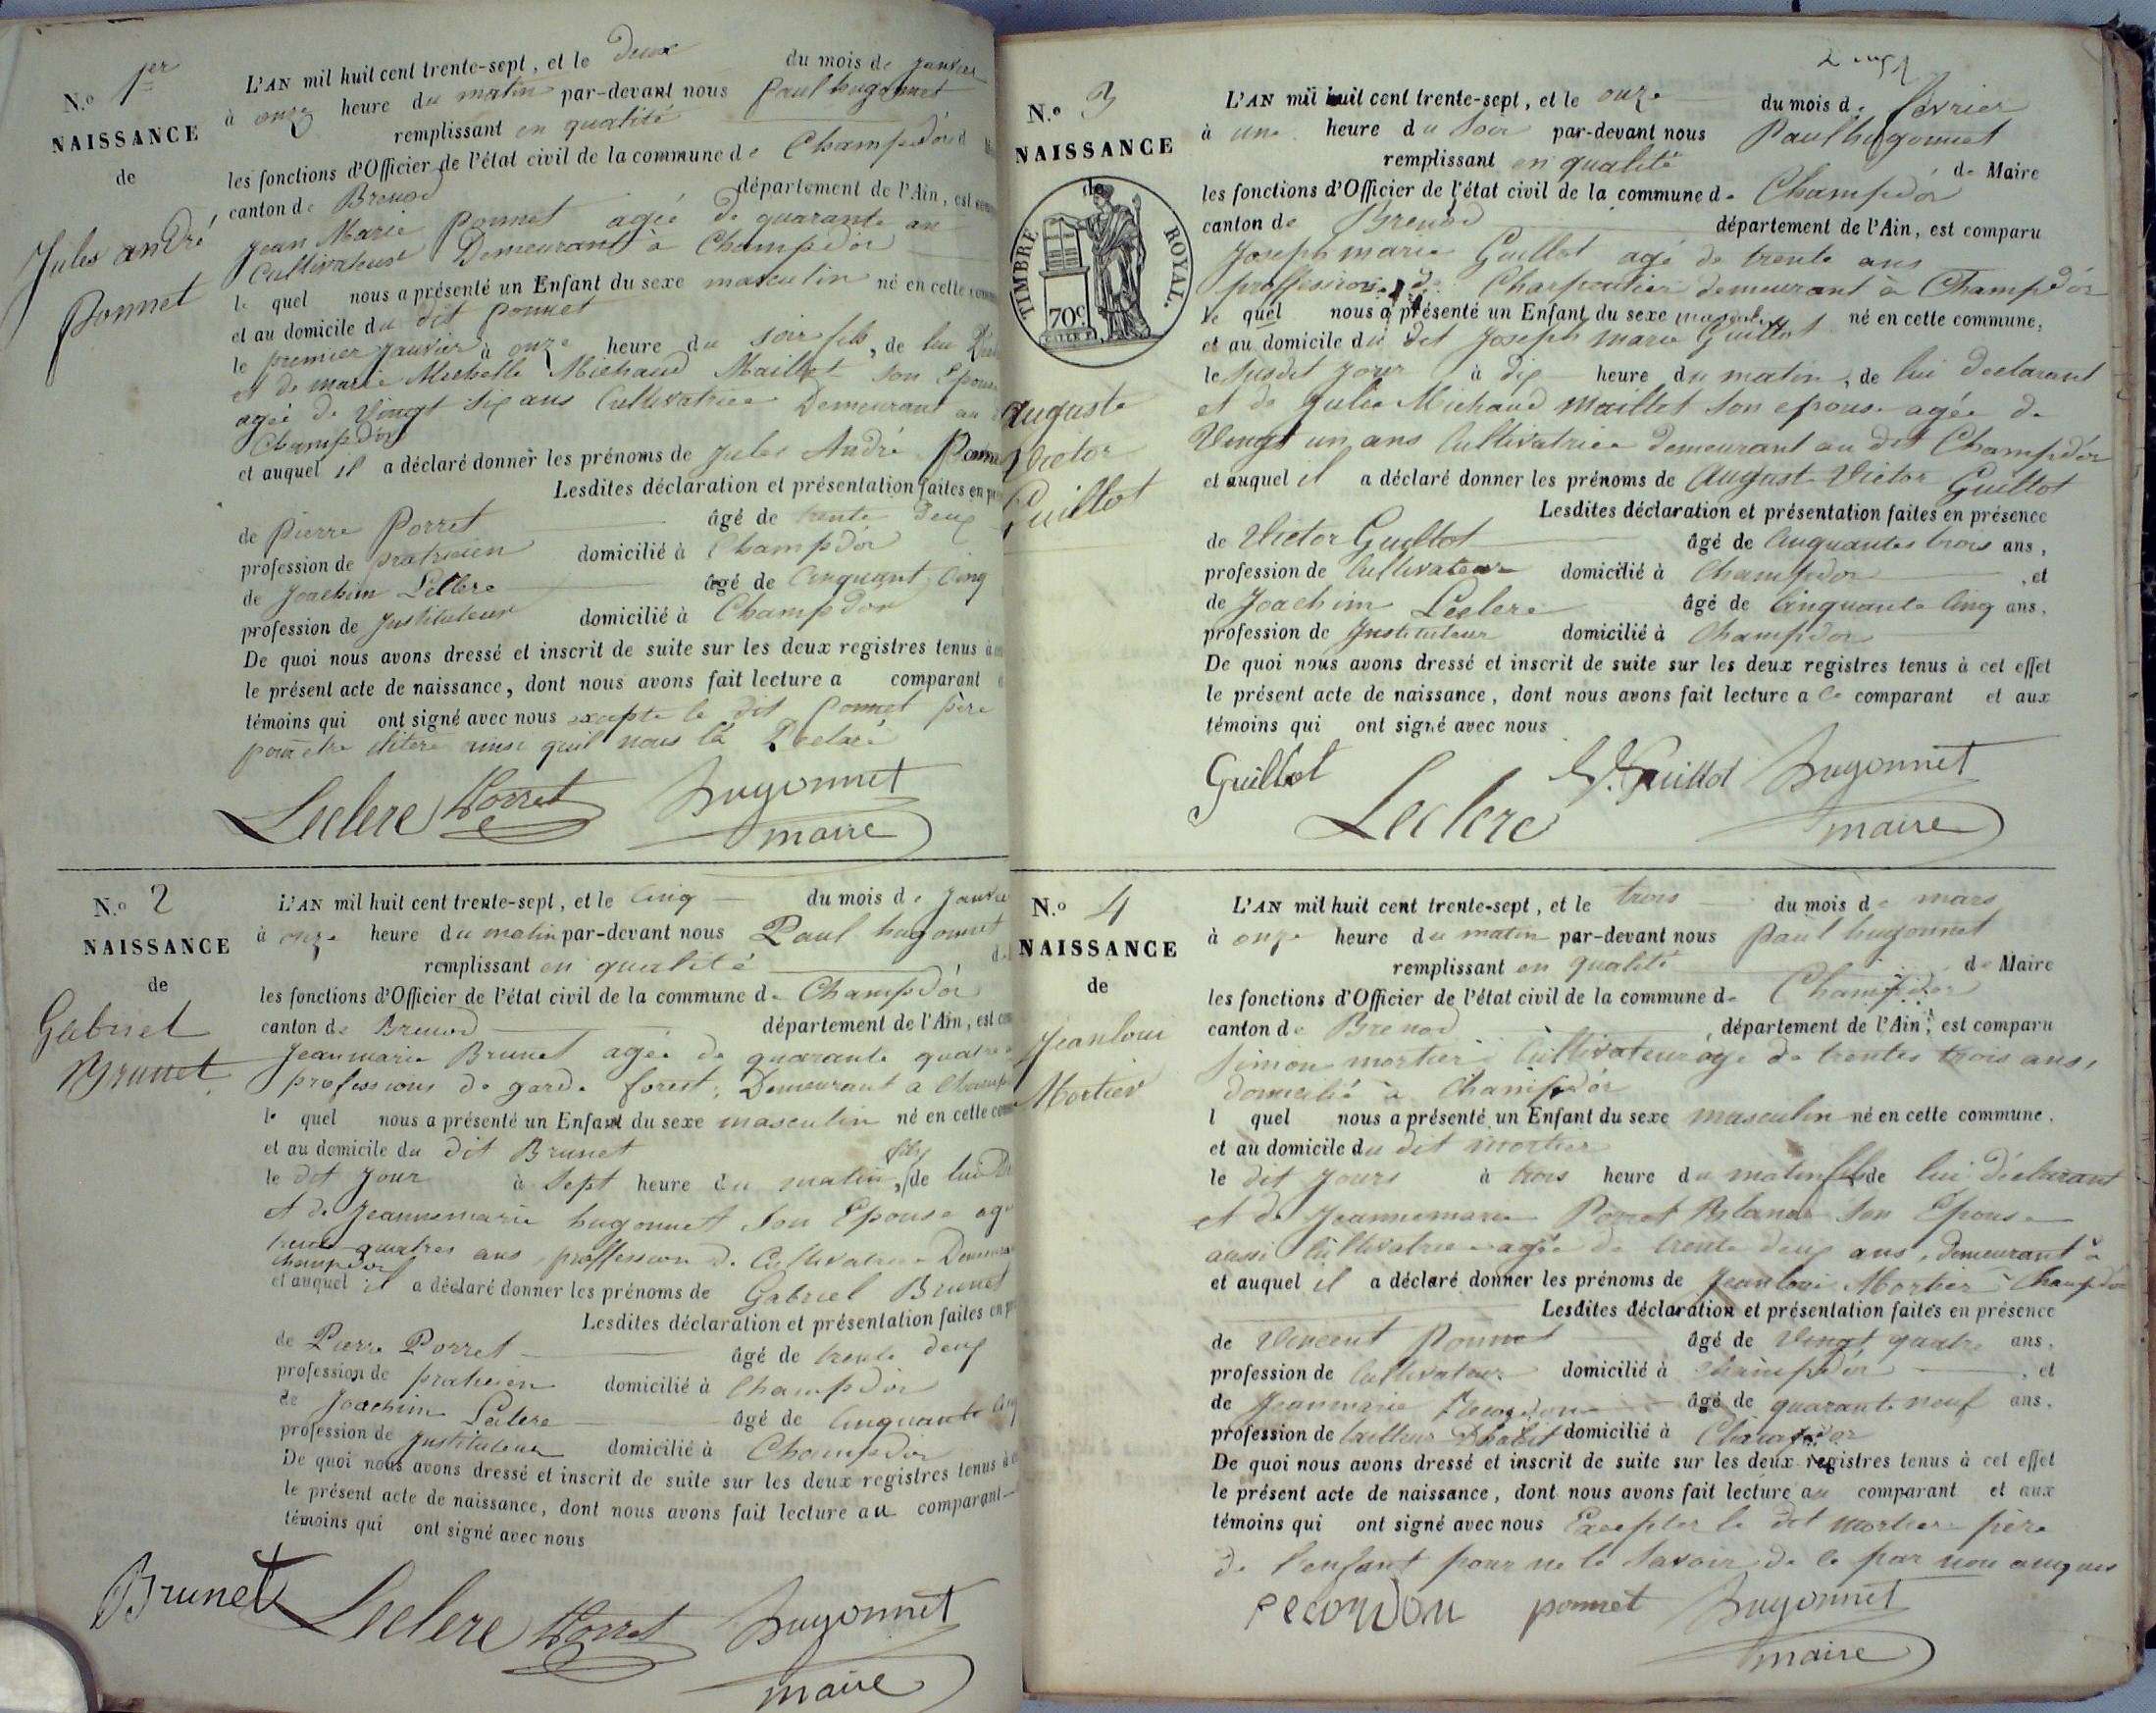 N.o 1er
NAISSANCE
de
Jules andré
Ponnet
L'AN mil huit cent trente-sept, et le deux du mois de janvier
à onze heure du matin par-devant nous Paul hugonnet
remplissant en qualité
les fonctions d'Officier de l'état civil de la commune de Champdor
canton de Brenod département de l'Ain, est
Jean Marie Ponnet agée de quarante an
Cultivateur Demeurant à Champdor
le quel nous a présenté un Enfant du sexe masculin né en cette
et au domicile du dit Ponnet
le premier janvier à onze heure du soir fils, de lui
et de marie Michelle Michaud Maillet son Epouse
agée de Vingt six ans Cultivatrice Demeurant au
Champdor
et auquel il a déclaré donner les prénoms de Jules André
Lesdites déclaration et présentation faites en
de Pierre Porret âgé de trente deux
profession de praticien domicilié à Champdor
de Joachim Leclere âgé de Cinquant Cinq
profession de Instituteur domicilié à Champdor
De quoi nous avons dressé et inscrit de suite sur les deux registres tenus à
le présent acte de naissance, dont nous avons fait lecture a comparant
témoins qui ont signé avec nous excepte le dit Ponnet père
pour etre iliteré ainsi quil nous la Declaré
Leclere Porret hugonnet
maire
N.o 2
NAISSANCE
de
Gabriel
Brunet
L'AN mil huit cent trente-sept, et le Cinq du mois de Janvier
à onze heure du matin par-devant nous Paul hugonnet
remplissant en qualité
les fonctions d'Officier de l'état civil de la commune de Champdor
canton de Brenod département de l'Ain, est
Jeanmarie Brunet agée de quarante quatre
professions de garde forest, Demeurant a
le quel nous a présenté un Enfant du sexe masculin né en cette
et au domicile du dit Brunet
le dit Jour à Sept heure du matin, fils de lui
et de Jeannemarie hugonnet Son Epouse
trente quatres ans proffession de Cultivatrice
Champdor
et auquel il a déclaré donner les prénoms de Gabriel Brunet
Lesdites déclaration et présentation faites en
de Pierre Porret âgé de trente deux
profession de praticien domicilié à Champdor
de Joachim Leclere âgé de Cinquante
profession de Instituteur domicilié à Champdor
De quoi nous avons dressé et inscrit de suite sur les deux registres tenus à
le présent acte de naissance, dont nous avons fait lecture au comparant
témoins qui ont signé avec nous
Brunet Leclere Porret hugonnet
maire
N.o 3
NAISSANCE
de
TIMBRE ROYAL.
70c
auguste
Victor
Guillot
L'AN mil huit cent trente-sept, et le onze du mois de février
à une heure du Soir par-devant nous Paul hugonnet
remplissant en qualité de Maire
les fonctions d'Officier de l'état civil de la commune de Champdor
canton de Brenod département de l'Ain, est comparu
Joseph marie Guillot agé de trente ans
proffession de Charpentier demeurant à Champdor
le quel nous a présenté un Enfant du sexe né en cette commune,
et au domicile du dit Joseph marie Guillot
le susdit jour à dix heure du matin, de lui declarant
et de Julie Michaud Maillet Son epouse agée de
Vingt un ans Cultivatrice demeurant au dit Champdor
et auquel il a déclaré donner les prénoms de August Victor Guillot
Lesdites déclaration et présentation faites en présence
de Victor Guillot âgé de Cinquantes trois ans,
profession de Cultivateur domicilié à Champdor, et
de Joachim Leclere âgé de Cinquante Cinq ans,
profession de Instituteur domicilié à Champdor
De quoi nous avons dressé et inscrit de suite sur les deux registres tenus à cet effet
le présent acte de naissance, dont nous avons fait lecture a Ce comparant et aux
témoins qui ont signé avec nous
Guillot Leclere V. Guillot hugonnet
maire
N.o 4
NAISSANCE
de
Jeanloui
Mortier
L'AN mil huit cent trente-sept, et le trois du mois de mars
à onze heure du matin par-devant nous Paul hugonnet
remplissant en qualité de Maire
les fonctions d'Officier de l'état civil de la commune de Champdor
canton de Brenod, département de l'Ain, est comparu
Simon mortier Cultivateur âgé de trentes trois ans,
domicilié à Champdor
l quel nous a présenté un Enfant du sexe masculin né en cette commune.
et au domicile du dit mortier
le dit jours à trois heure du matin fils de lui déclarant
et de Jeannemarie Porret Blanc Son Epouse
aussi Cultivatrice agée de trente deux ans, demeurant à
et auquel il a déclaré donner les prénoms de Jeanloui Mortier Champdor
Lesdites déclaration et présentation faites en présence
de Vincent Ponnet âgé de Vingt quatre ans,
profession de Cultivateur domicilié à Champdor, et
de Jeanmarie Recordon âgé de quarante neuf ans.
profession de tailleur Dhabit domicilié à Champdor
De quoi nous avons dressé et inscrit de suite sur les deux registres tenus à cet effet
le présent acte de naissance, dont nous avons fait lecture au comparant et aux
témoins qui ont signé avec nous Excepter le dit mortier père
de l'enfant pour ne le Savoir de ce par nou anquis
recordon ponnet hugonnet
maire